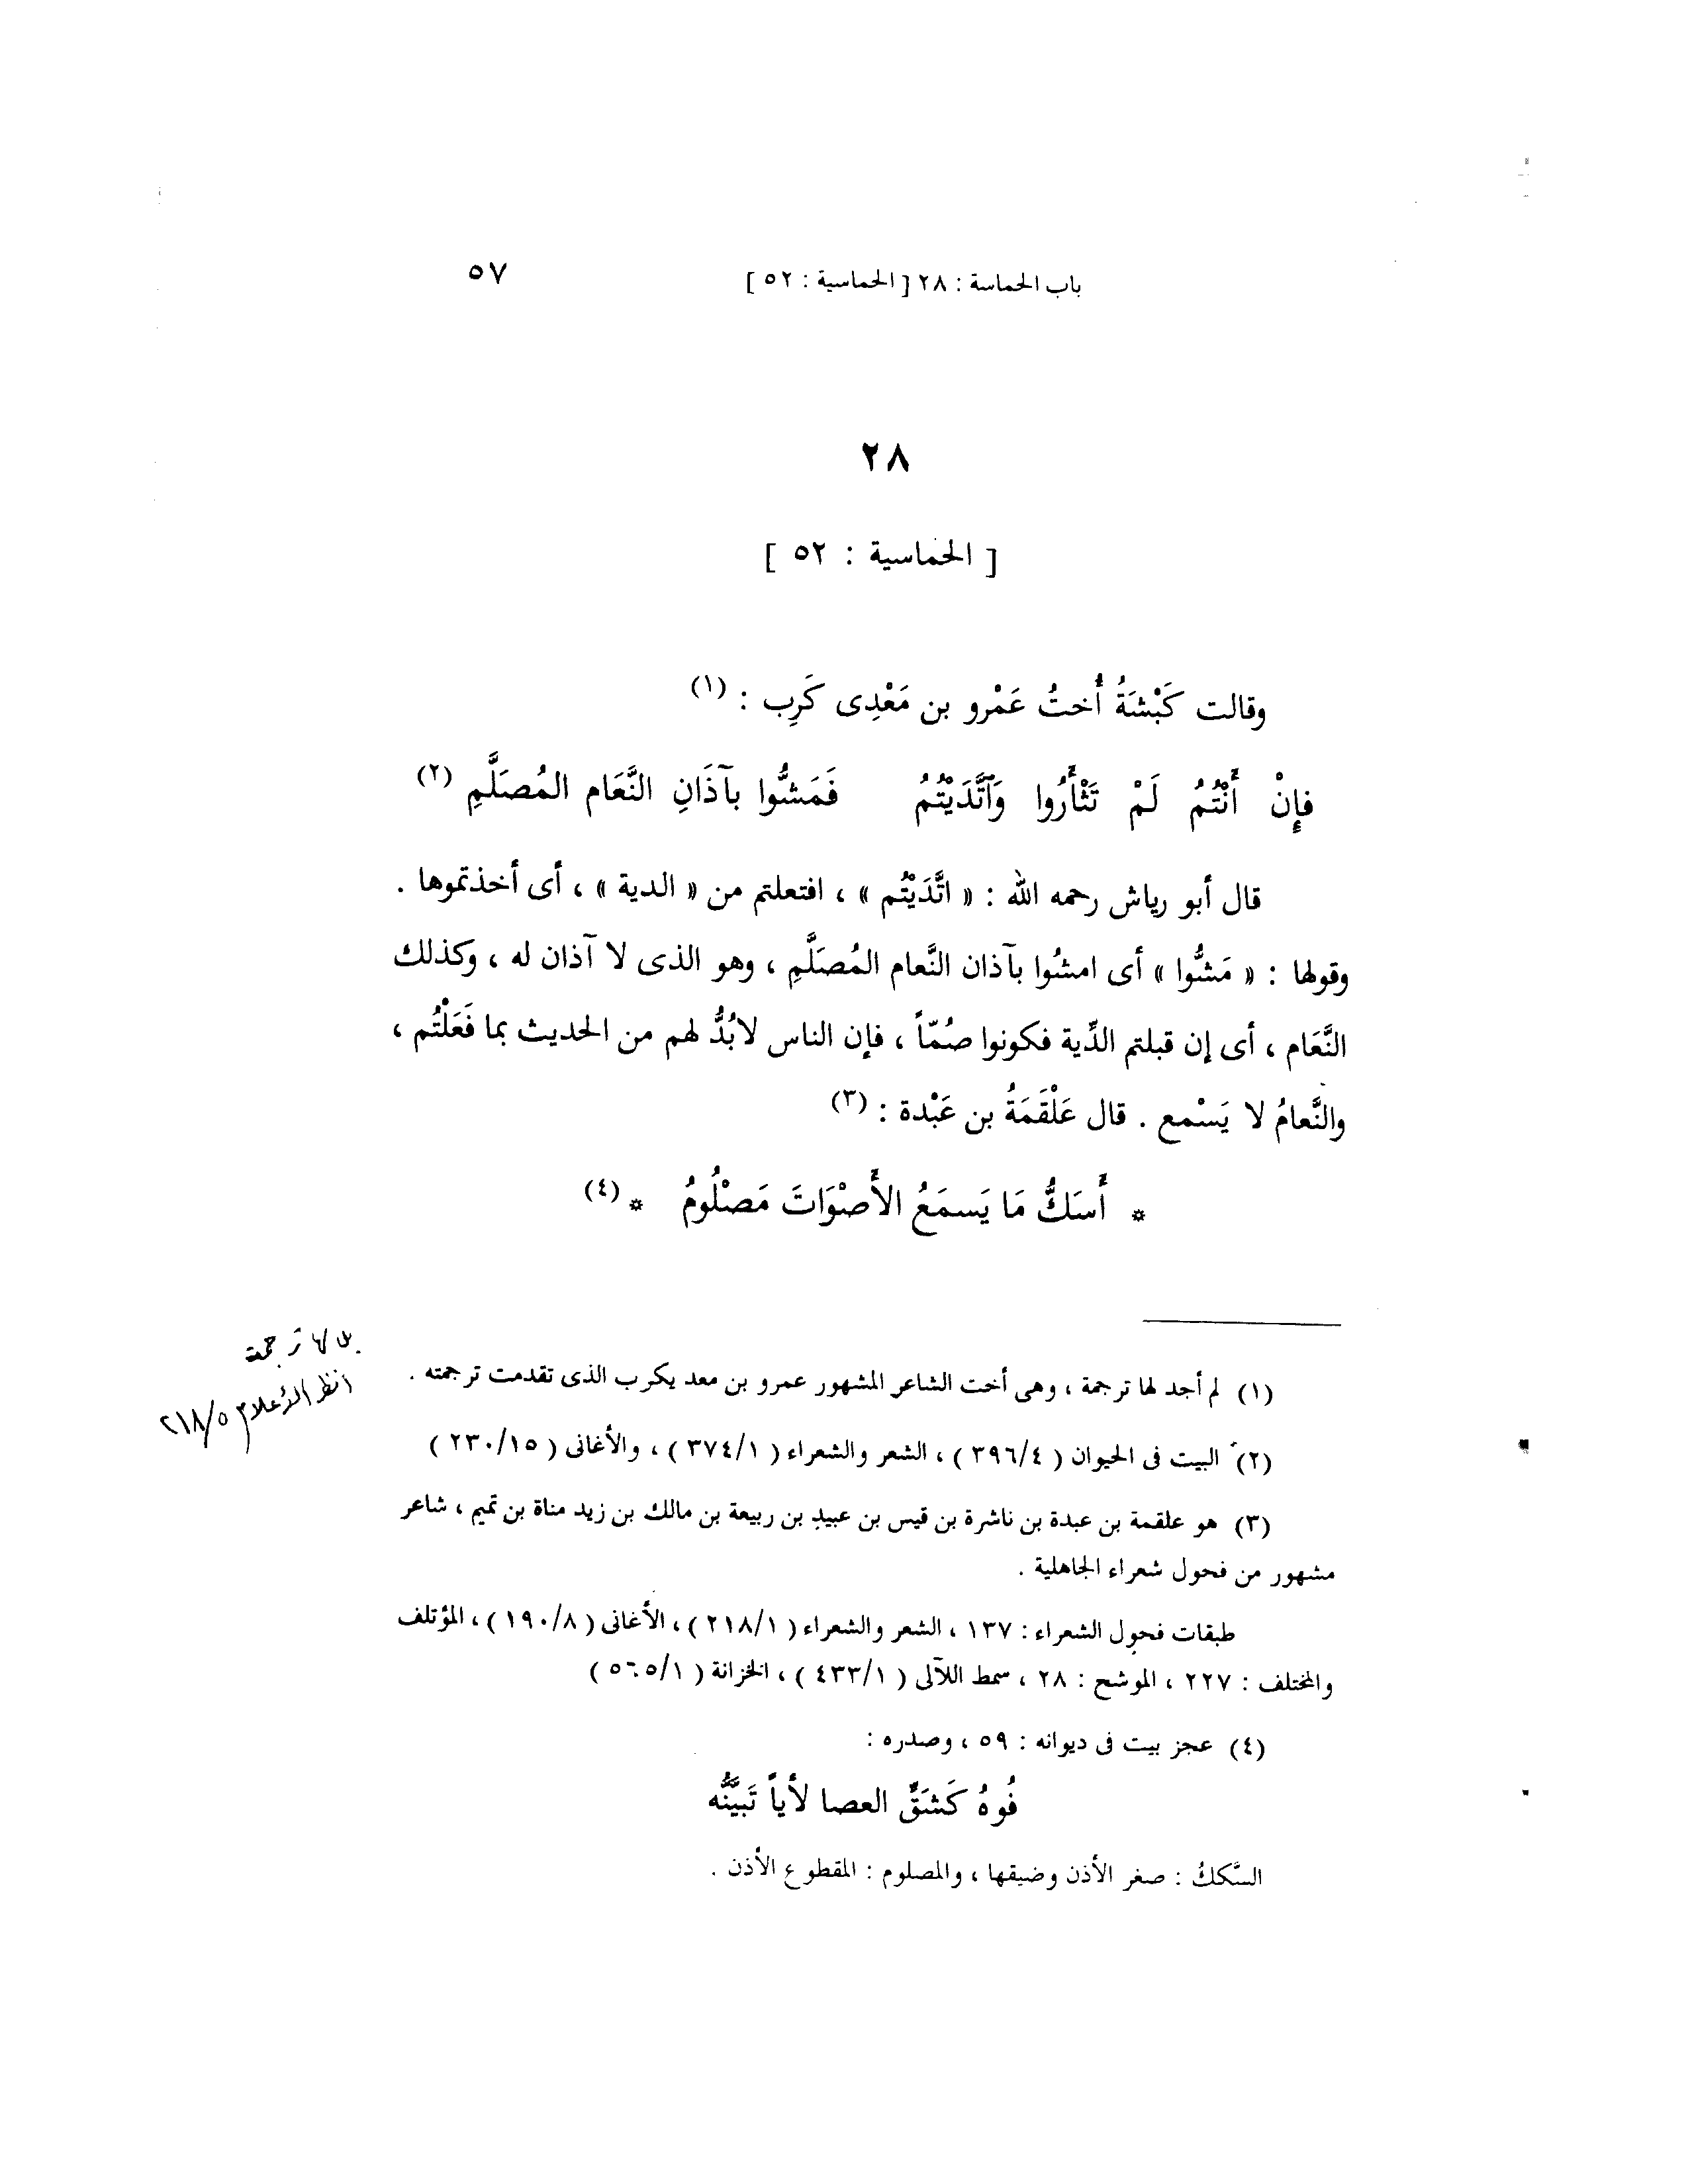 باب الحماسة : ٢٨ [ الحماسية : ٥٢ ]
٥٧
٢٨
[ الحماسية : ٥٢ ]
وقالت كَبْشَةُ أُختُ عَمْرو بن مَعْدِى كَرِب : (١)
فإِنْ أَنْتُمُ لَمْ تَثْأَرُوا وَٱتَّدَيْتُمُ فَمَشُّوا بآذَانِ النَّعَام المُصَلَّمِ (٢)
قال أبو رياش رحمه الله : « اتَّدَيْتُم » ، افتعلتم من « الدية » ، أى أخذتموها .
وقولها : « مَشُّوا » أى امشُوا بآذان النَّعام المُصَلَّمِ ، وهو الذى لا آذان له ، وكذلك
النَّعَام ، أى إن قبلتم الدِّية فكونوا صُمّاً ، فإن الناس لابُدُّ لهم من الحديث بما فَعَلْتُم ،
والنَّعامُ لا يَسْمع . قال عَلْقَمَةُ بن عَبْدة : (٣)
* أَسَكُّ مَا يَسمَعُ الأَصْوَاتَ مَصْلُومُ * (٤)
(١) لم أجد لها ترجمة ، وهى أخت الشاعر المشهور عمرو بن معد يكرب الذى تقدمت ترجمته .
بل لها ترجمة
انظر الأعلام ٢١٨/٥
(٢) البيت فى الحيوان ( ٣٩٦/٤ ) ، الشعر والشعراء ( ٣٧٤/١ ) ، والأغانى ( ٢٣٠/١٥ )
(٣) هو علقمة بن عبدة بن ناشرة بن قيس بن عبيد بن ربيعة بن مالك بن زيد مناة بن تميم ، شاعر
مشهور من فحول شعراء الجاهلية .
طبقات فحول الشعراء : ١٣٧ ، الشعر والشعراء ( ٢١٨/١ ) ، الأغانى ( ١٩٠/٨ ) ، المؤتلف
والمختلف : ٢٢٧ ، الموشح : ٢٨ ، سمط اللآلى ( ٤٣٣/١ ) ، الخزانة ( ٥٦٥/١ )
(٤) عجز بيت فى ديوانه : ٥٩ ، وصدره :
فُوهُ كَشَقِّ العصا لأياً تَبَيَّنُه
السَّككُ : صغر الأذن وضيقها ، والمصلوم : المقطوع الأذن .